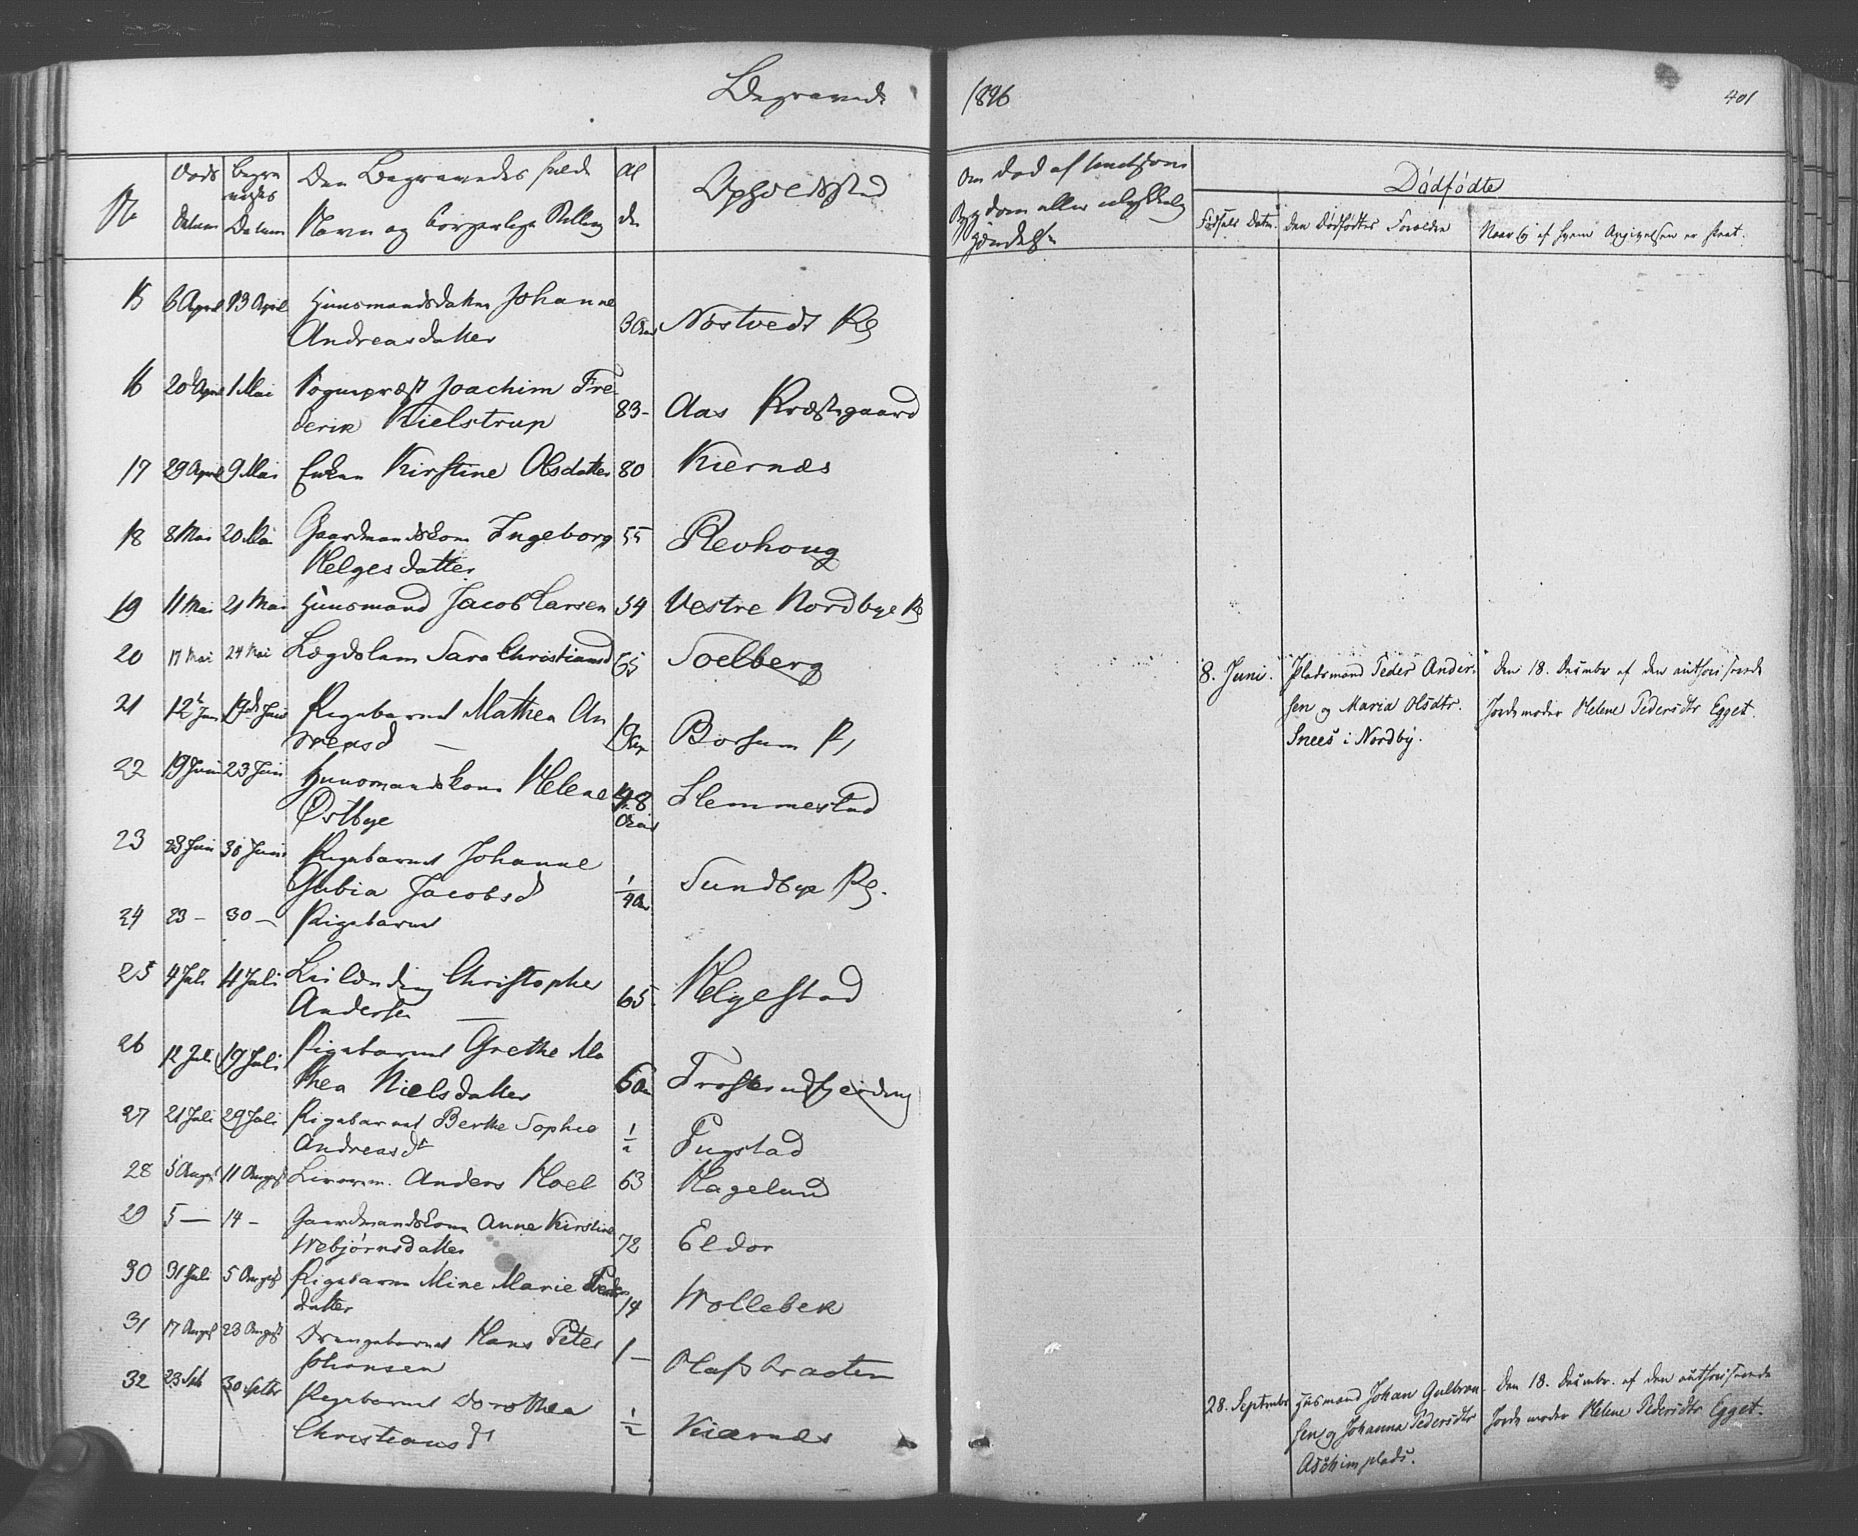 Begravede 1846 401
No
Døds Datum
Begravelses Datum
Den Begravedes fulde
Navn og borgerlige Stilling
Al
der
Opholdssted
Om død af smitsom
Sygdom eller ulykkelig
Hændelse
Dødfødte
Fødsels Datm.
den Dødfødtes Forældre
Naar og af hvem Angivelsen er skeet.
15 6 April 13 April Huusmandsdatter Johanne
Andreasdatter 3 Aar Nostvedt
16 20 April 1 Mai Sognepræst Joachim Fre
derik Kielstrup 83 - Aas Præstegaard
17 29 April 9 Mai Enken Kirstine Olsdatter 80 Kiernæs
18 8 Mai 20 Mai Gaardmandskone Ingeborg 55 Revhoug
Helgesdatter
19 11 Mai 21 Mai Huusmand Jacob Larsen 54 Vestre Nordbye
20 17 Mai 24 Mai Lægdslem Sara Christiansd 65 Soelberg
8. Juni. Pladsmand Peder Ander-
sen og Maria Olsdtr.
Snees i Nordby.
Den 18. Decembr af den authoriserede
Jordemoder Helene Pedersdtr Egget.
21 12 Juni Pigebarnet Mathea An
Borsum
22 19 Juni 23 Juni Huusmandskone Helene 48 Slemmestad
Østbye
23 23 Juni 30 Juni Pigebarnet Johanne
Gubia Jacobsd 1/4 Aar Sundbye
24 23 - 30 - Pigebarnet
25 4 Juli 11 Juli Leilænding Christopher
Andersen 65 Helgestad
26 12 Juli 19 Juli Pigebarnet Grethe Ma
thea Nielsdatter 6 Aar
27 21 Juli 29 Juli Pigebarnet Berthe Sophie
Andreasdr 1/2 Fugstad
28 5 August 11 August Anders Hoel 63 Hagelund
29 5 - 14 - Gaardmandskone Anne Kirstine
Webjørnsdatter 72 Eldor
30 31 Juli 5 August Pigebarn Mine Marie
datter 14 Wollebek
31 17 August 23 August Drengebarnet Hans Peter
Johansen 1 - Olafsbraaten
32 23 Sptb 30 Septbr Pigebarnet Dorothea
Christiansd 1/2 Kiærnes
28. Septembr Husmand Johan Gulbran-
sen og Johanna Pedersdtr
Askimplads.
Den 18. Decembr. af den authoriserede
Jordemoder Helene Pedersdtr Egget.